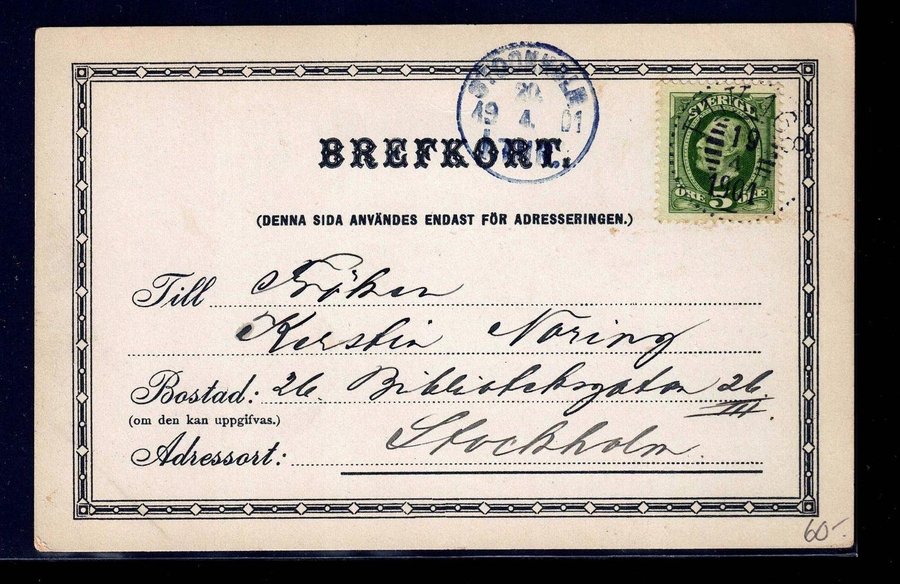 STOCKHOLM
20.
19 4. 01
SVERIGE
19
4
1901
5
ÖRE ÖRE
BREFKORT.
(DENNA SIDA ANVÄNDES ENDAST FÖR ADRESSERINGEN.)
Till Fröken
Kerstin Noring
Bostad: 26. Biblioteksgatan 26
III.
(om den kan uppgifvas.)
Adressort: Stockholm.
60-